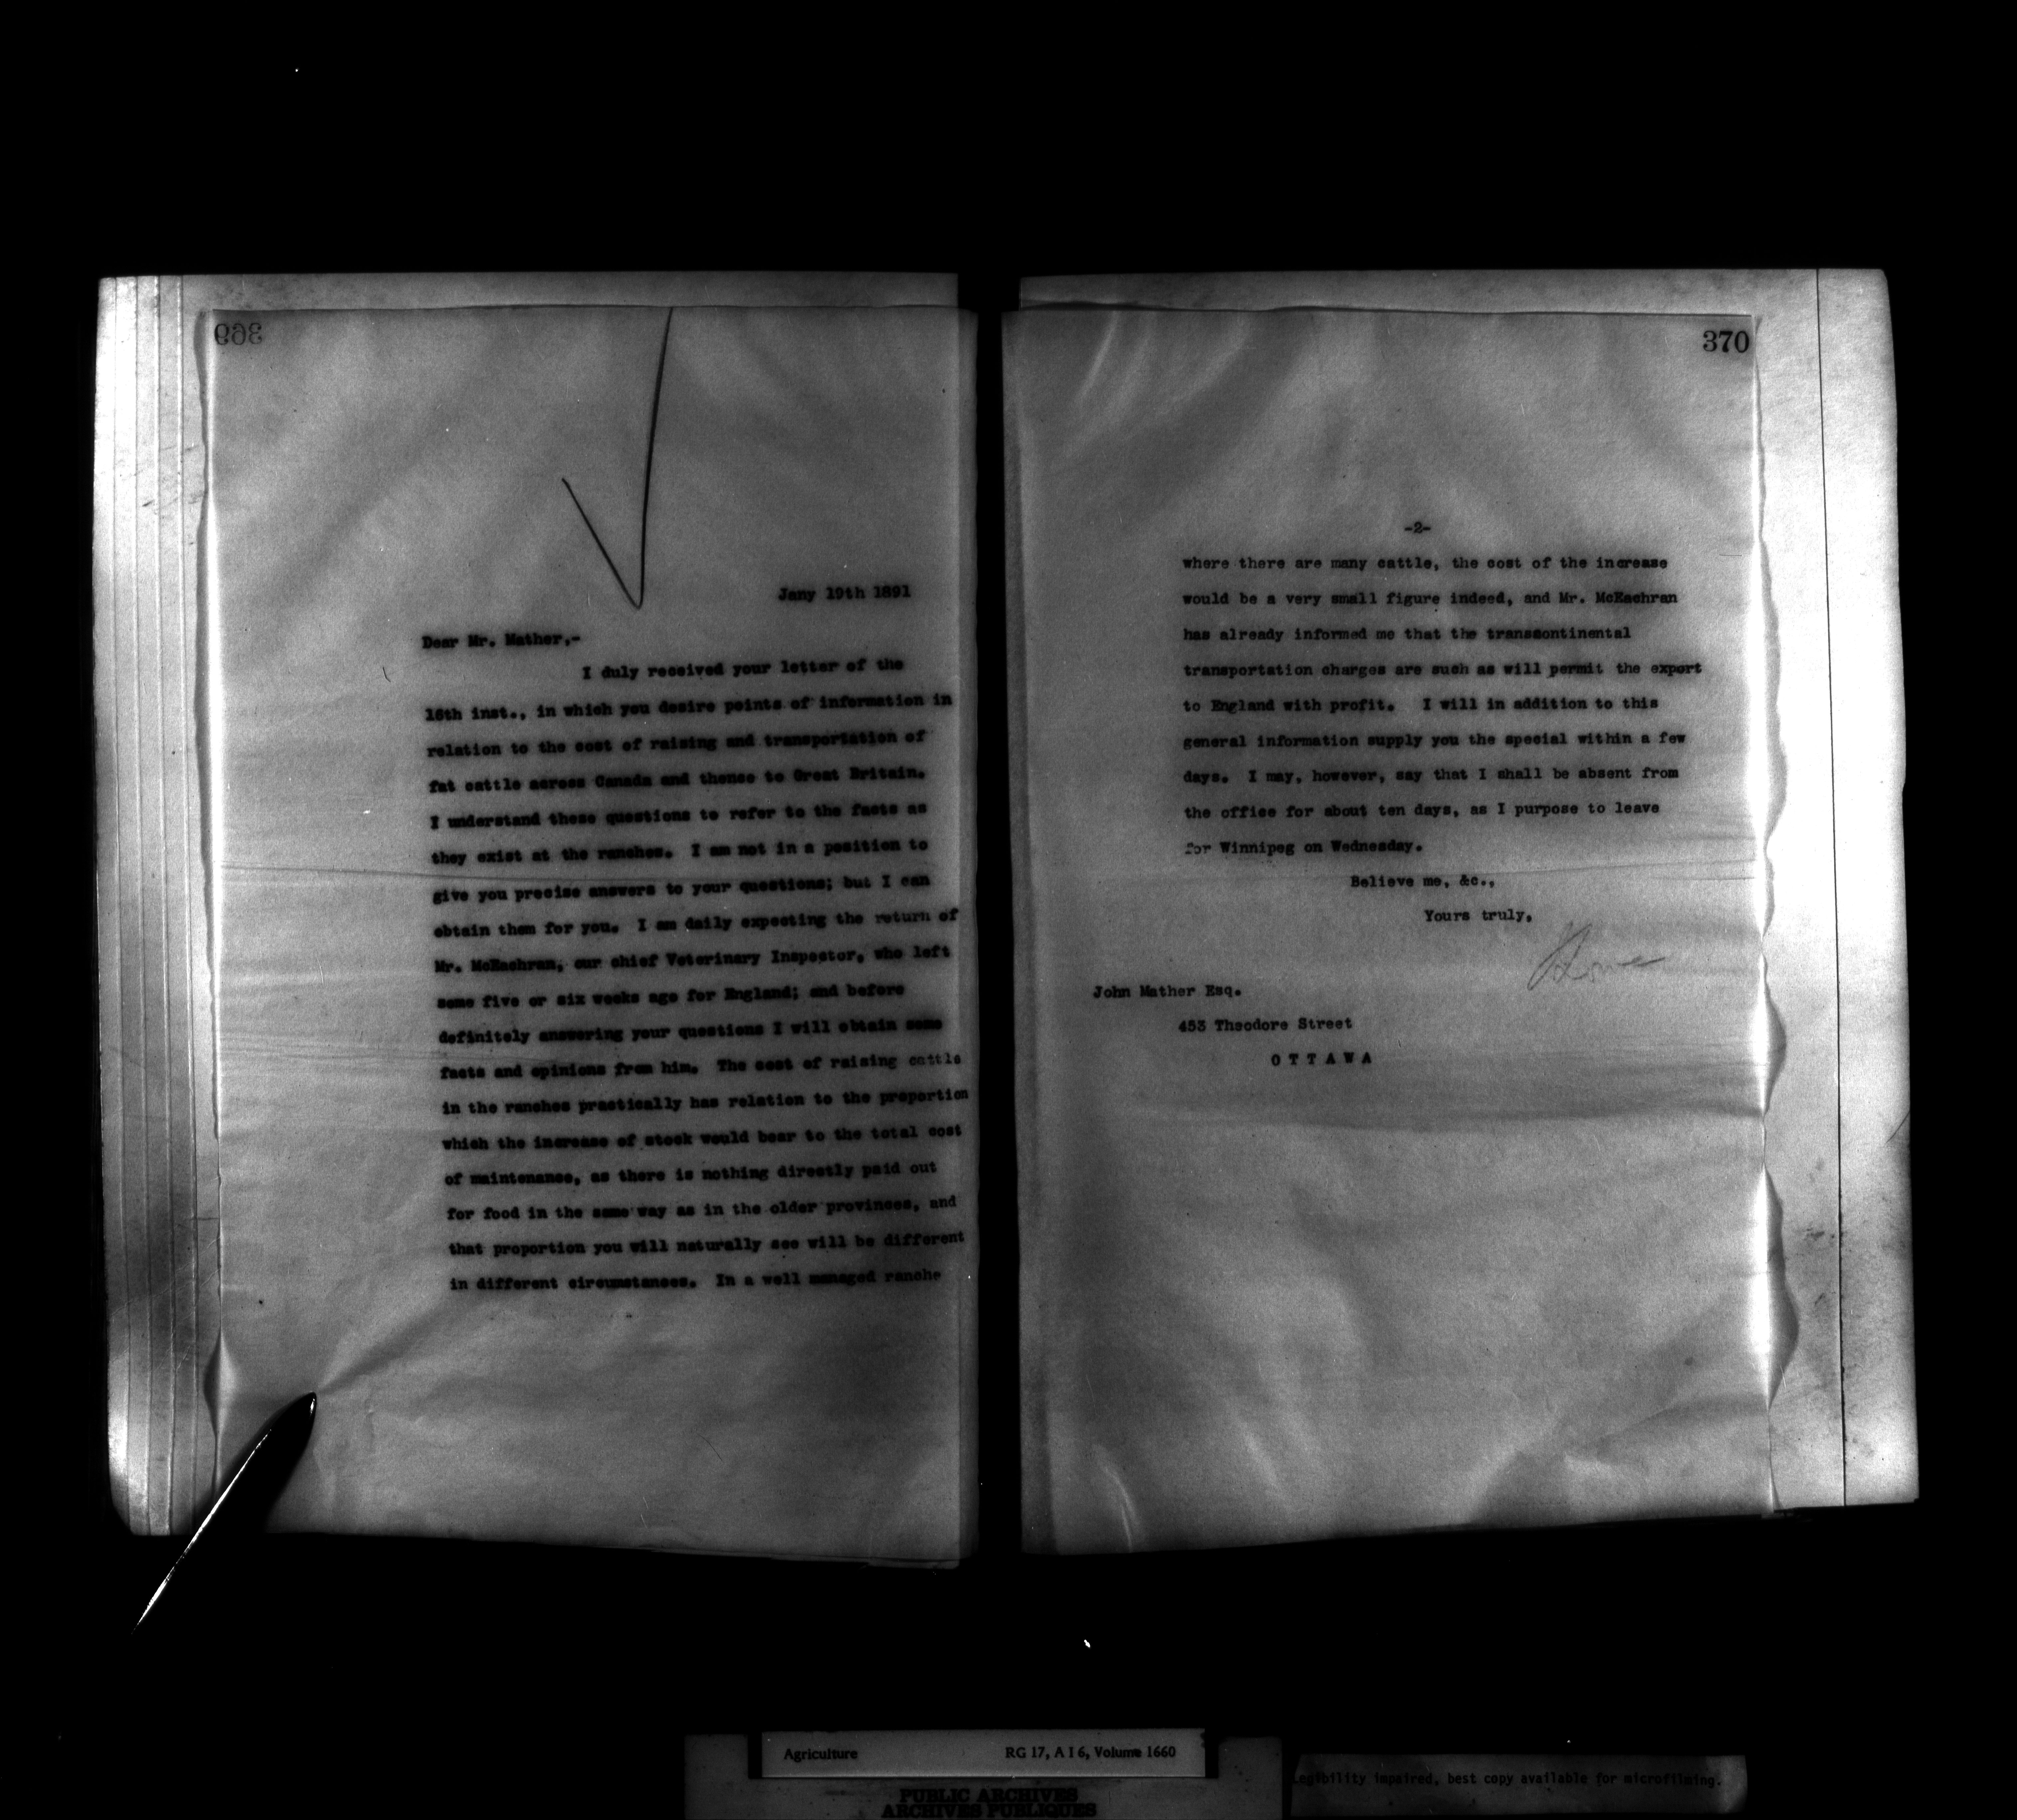 369
Jany 19th 1891
Dear Mr. Mather,-
I duly received your letter of the
16th inst., in which you desire points of information in
relation to the cost of raising and transportation of
fat cattle across Canada and thence to Great Britain.
I understand these questions to refer to the facts as
they exist at the ranches. I am not in a position to
give you precise answers to your questions; but I can
obtain them for you. I am daily expecting the return of
Mr. McEachran, our chief Veterinary Inspector, who left
some five or six weeks ago for England; and before
definitely answering your questions I will obtain some
facts and opinions from him. The cost of raising cattle
in the ranches practically has relation to the proportion
which the increase of stock would bear to the total cost
of maintenance, as there is nothing directly paid out
for food in the same way as in the older provinces, and
that proportion you will naturally see will be different
in different circumstances. In a well managed ranche
370
-2-
where there are many cattle, the cost of the increase
would be a very small figure indeed, and Mr. McEachran
has already informed me that the transcontinental
transportation charges are such as will permit the export
to England with profit. I will in addition to this
general information supply you the special within a few
days. I may, however, say that I shall be absent from
the office for about ten days, as I purpose to leave
for Winnipeg on Wednesday.
Believe me, &c.,
Yours truly,
John Mather Esq.
453 Theodore Street
OTTAWA
Agriculture RG 17, A I 6, Volume 1660
PUBLIC ARCHIVES
ARCHIVES PUBLIQUES
Legibility impaired, best copy available for microfilming.